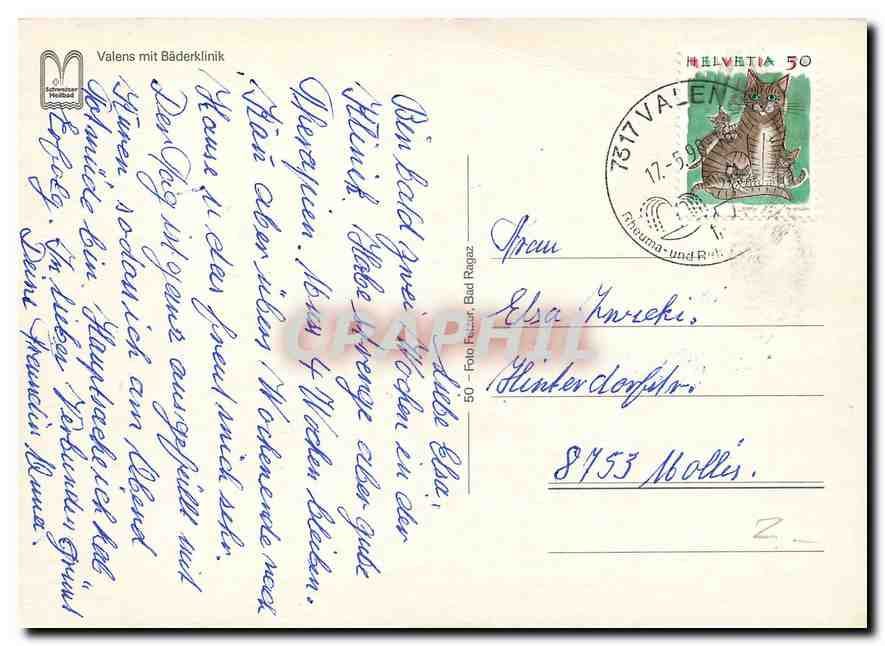 Valens mit Bäderklinik
Schweizer
Heilbad
Liebe Elsa,
Bin bald zwei Wochen in der
Klinik. Habe strenge aber gute
Therapien. Muss 4 Wochen bleiben.
Kan aber übers Wochenende nach
Hause u das freut mich sehr.
Der Tag ist ganz ausgefüllt mit
Kuren sodass ich am Abend
todmüde bin. Hauptsache ich hab
Erfolg. In lieber Verbunden grüsst
Deine Freundin Anna.
50 – Foto Fetzer, Bad Ragaz
HELVETIA 50
7317 VALENS
17.-5.9
Rheuma- und
Frau
Elsa
Hinterdorfstr.
8753 Mollis.
Z.
CPAPHIL